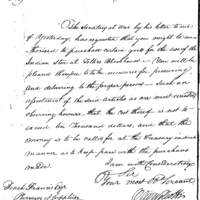 The Secretary at war by his letter to me
of Yesterday, has requested that you might be au-
thorised to purchase certain goods for the use of the
Indian store at Tellico Blockhouse - You will be
please therefore to take measures for procuring
and delivering to the proper person - Such an
assortment of the said articles as are most
observing however, that the cost thereof is not to
exceed ten thousand dollars, and that the
money as to be called for at the Treasury in such
manner as to keep pace with the purchases
made.
I am with Consideration
Sir
Your most Ob Servant
Tench Francis Esqr
Purveyor of Supplies